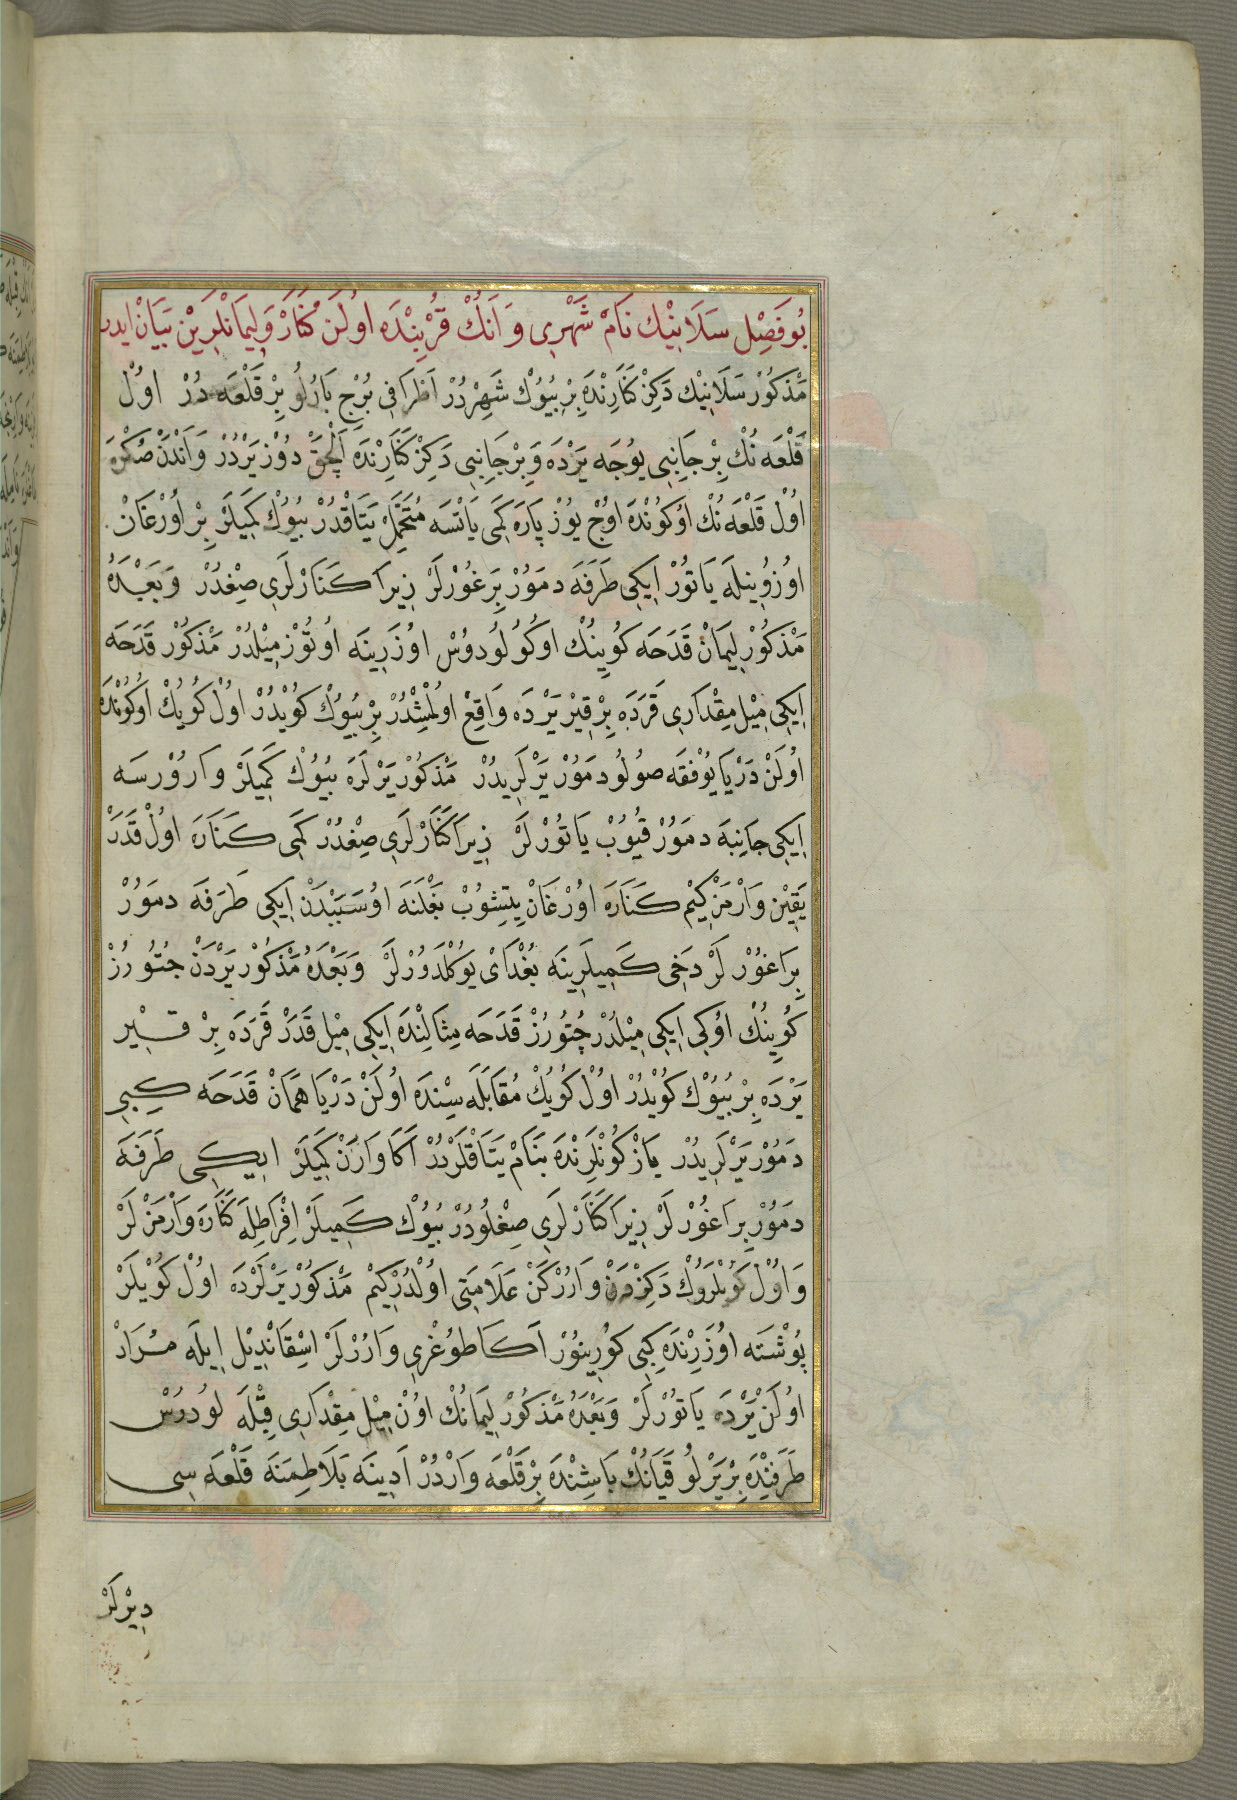 بُو فَصِل سَلَانِیْك نَامْ شَهْرِی وَ اَنُكْ قُرْبِنْدَه اُولَنْ كَنَارْ وَلِیمَانْلَرِیْن بَیَانْ اِیدر
مَذْكُوْر سَلَانِیْك دَكِزْ كَنَارِنْدَه بِرْ بُیُوْك شَهِرْدُرْ اَطْرَافِی بُرْجِ بَارُلُو بِرْ قَلْعَه دُرْ اُولْ
قَلْعَه نُكْ بِرْ جَانِبِی یُوجَه یَرْدَه وَ بِرْ جَانِبِی دَكِزْ كَنَارِنْدَه اَلْچَقْ دُوْز یَرْدُرْ وَ اَنْدَنْ صُكْرَه
اُوْل قَلْعَه نُكْ اُوكُونْدَه اُوْچ یُوْز پَارَه كَمِی یَاتْسَه مُتَحَمِّلْ یَتَاقْدُرْ بُیُوْك كَمِیلَرْ بِرْ اُوْرْغَانْ
اُوزُوْنِیلَه یَاتُوْرْ اِیكِی طَرَفَه دمَوُرْ بِرَغُوْرْلَرْ زِیرَا كَنَارْلَرِی صِغْدُرْ وَبَعْدَهُ
مَذْكُوْر لِیمَانْ قَدَحَه كُوینُكْ اوكُولُودُوسْ اُوزَرِینَه اُوتُوْز مِیْلدُرْ مَذْكُوْر قَدَحَه
اِیكِی مِیْل مِقْدَارِی قَرَدَه بِرْ قِیْر یَرْدَه وَاقِعْ اولْمِشْدُرْ بِرْ بُیُوْك كُوْیدُرْ اُولْ كُویُكْ اُوكُونْدَه
اُولَنْ دَرْیَا یُوْفْقَه صُولُو دمَوُرْ یَرْلَرِیدُرْ مَذْكُوْر یَرْلَرَه بُیُوْك كَمِیلَرْ وَارُوْرسَه
اِیكِی جَانِبَه دمَوُرْ قُیُوُبْ یَاتُوْرْلَرْ زِیرَا كَنَارْلَرِی صِغْدُرْ كَمِی كَنَارَه اُولْ قَدَرْ
یَقِیْن وَارْمَزْ كِیْم كَنَارَه اُوْرْغَانْ یتِشُوبْ بَغْلَنَه اُوسَبَبْدَنْ اِیكِی طَرَفَه دمَوُرْ
بِرَاغُوْرْ لَرْ دَخِی كَمِیلَرِینَه بُغْدَایْ یُوكْلَدُورْلَرْ وَ بَعْدَهُ مَذْكُوْر یَرْدَنْ جُتُورُزْ
كُوینُكْ اُوكِی اِیكِی مِیْلدُرْ جُتُورُزْ قَدَحَه مِثَالِنْدَه اِیكِی مِیْل قَدَرْ قَرَدَه بِرْ قِیْر
یَرْدَه بِرْ بُیُوْك كُوْیدُرْ اُولْ كُویُكْ مُقَابَلَه سِنْدَه اُولَنْ دَرْیَا هَمَانْ قَدَحَه كِبِی
دَمُوْر یَرْلَرِیدُرْ یَازْ كُونْلَرِنْدَه بَنَامْ یَتَاقْلَرْدُرْ اَكَا وَارَنْ كَمِیلَرْ اِیكِی طَرَفَه
دمَوُرْ بِرَاغُوْرْ لَرْ زِیرَا كَنَارْلَرِی صِغْلُودُرْ بُیُوْك كَمِیلَرْ اِفْرَاطِلَه كَنَارَه وَارْمَزْ لَرْ
وَ اُوْلْ كُویْلَرُوْك دَكِزْدَنْ وَارُرْكَنْ عَلَامَتِی اُولْدُرْ كِیْم مَذْكُوْر یَرْلَرْدَه اُولْ كُویْلَرْ
پُوشْتَه اُوزَرِنْدَه كِبِی كُورِینُوْر اَكَا طُوغْرِی وَارُرْلَرْ اسْقَانْدِیْل اِیلَه مُرَادْ
اُولَنْ یَرْدَه یَاتُوْرْلَرْ وَبَعْدَهُ مَذْكُوْر لِیمَانُكْ اُونْ مِیْل مِقْدَارِی قِبْلَه لُودُرُسْ
طَرَفِنْدَه بِرْ یَرْلُو قَیَانُكْ بَاشِنْدَه بِرْ قَلْعَه وَارْدُرْ اَدِینَه پَلَاطِمَنَه قَلْعَه سِی
دِیْرلَرْ